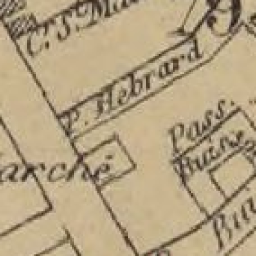 C. S. Ma
P. Hebrard
Pass.
Buiss
arché
Bui